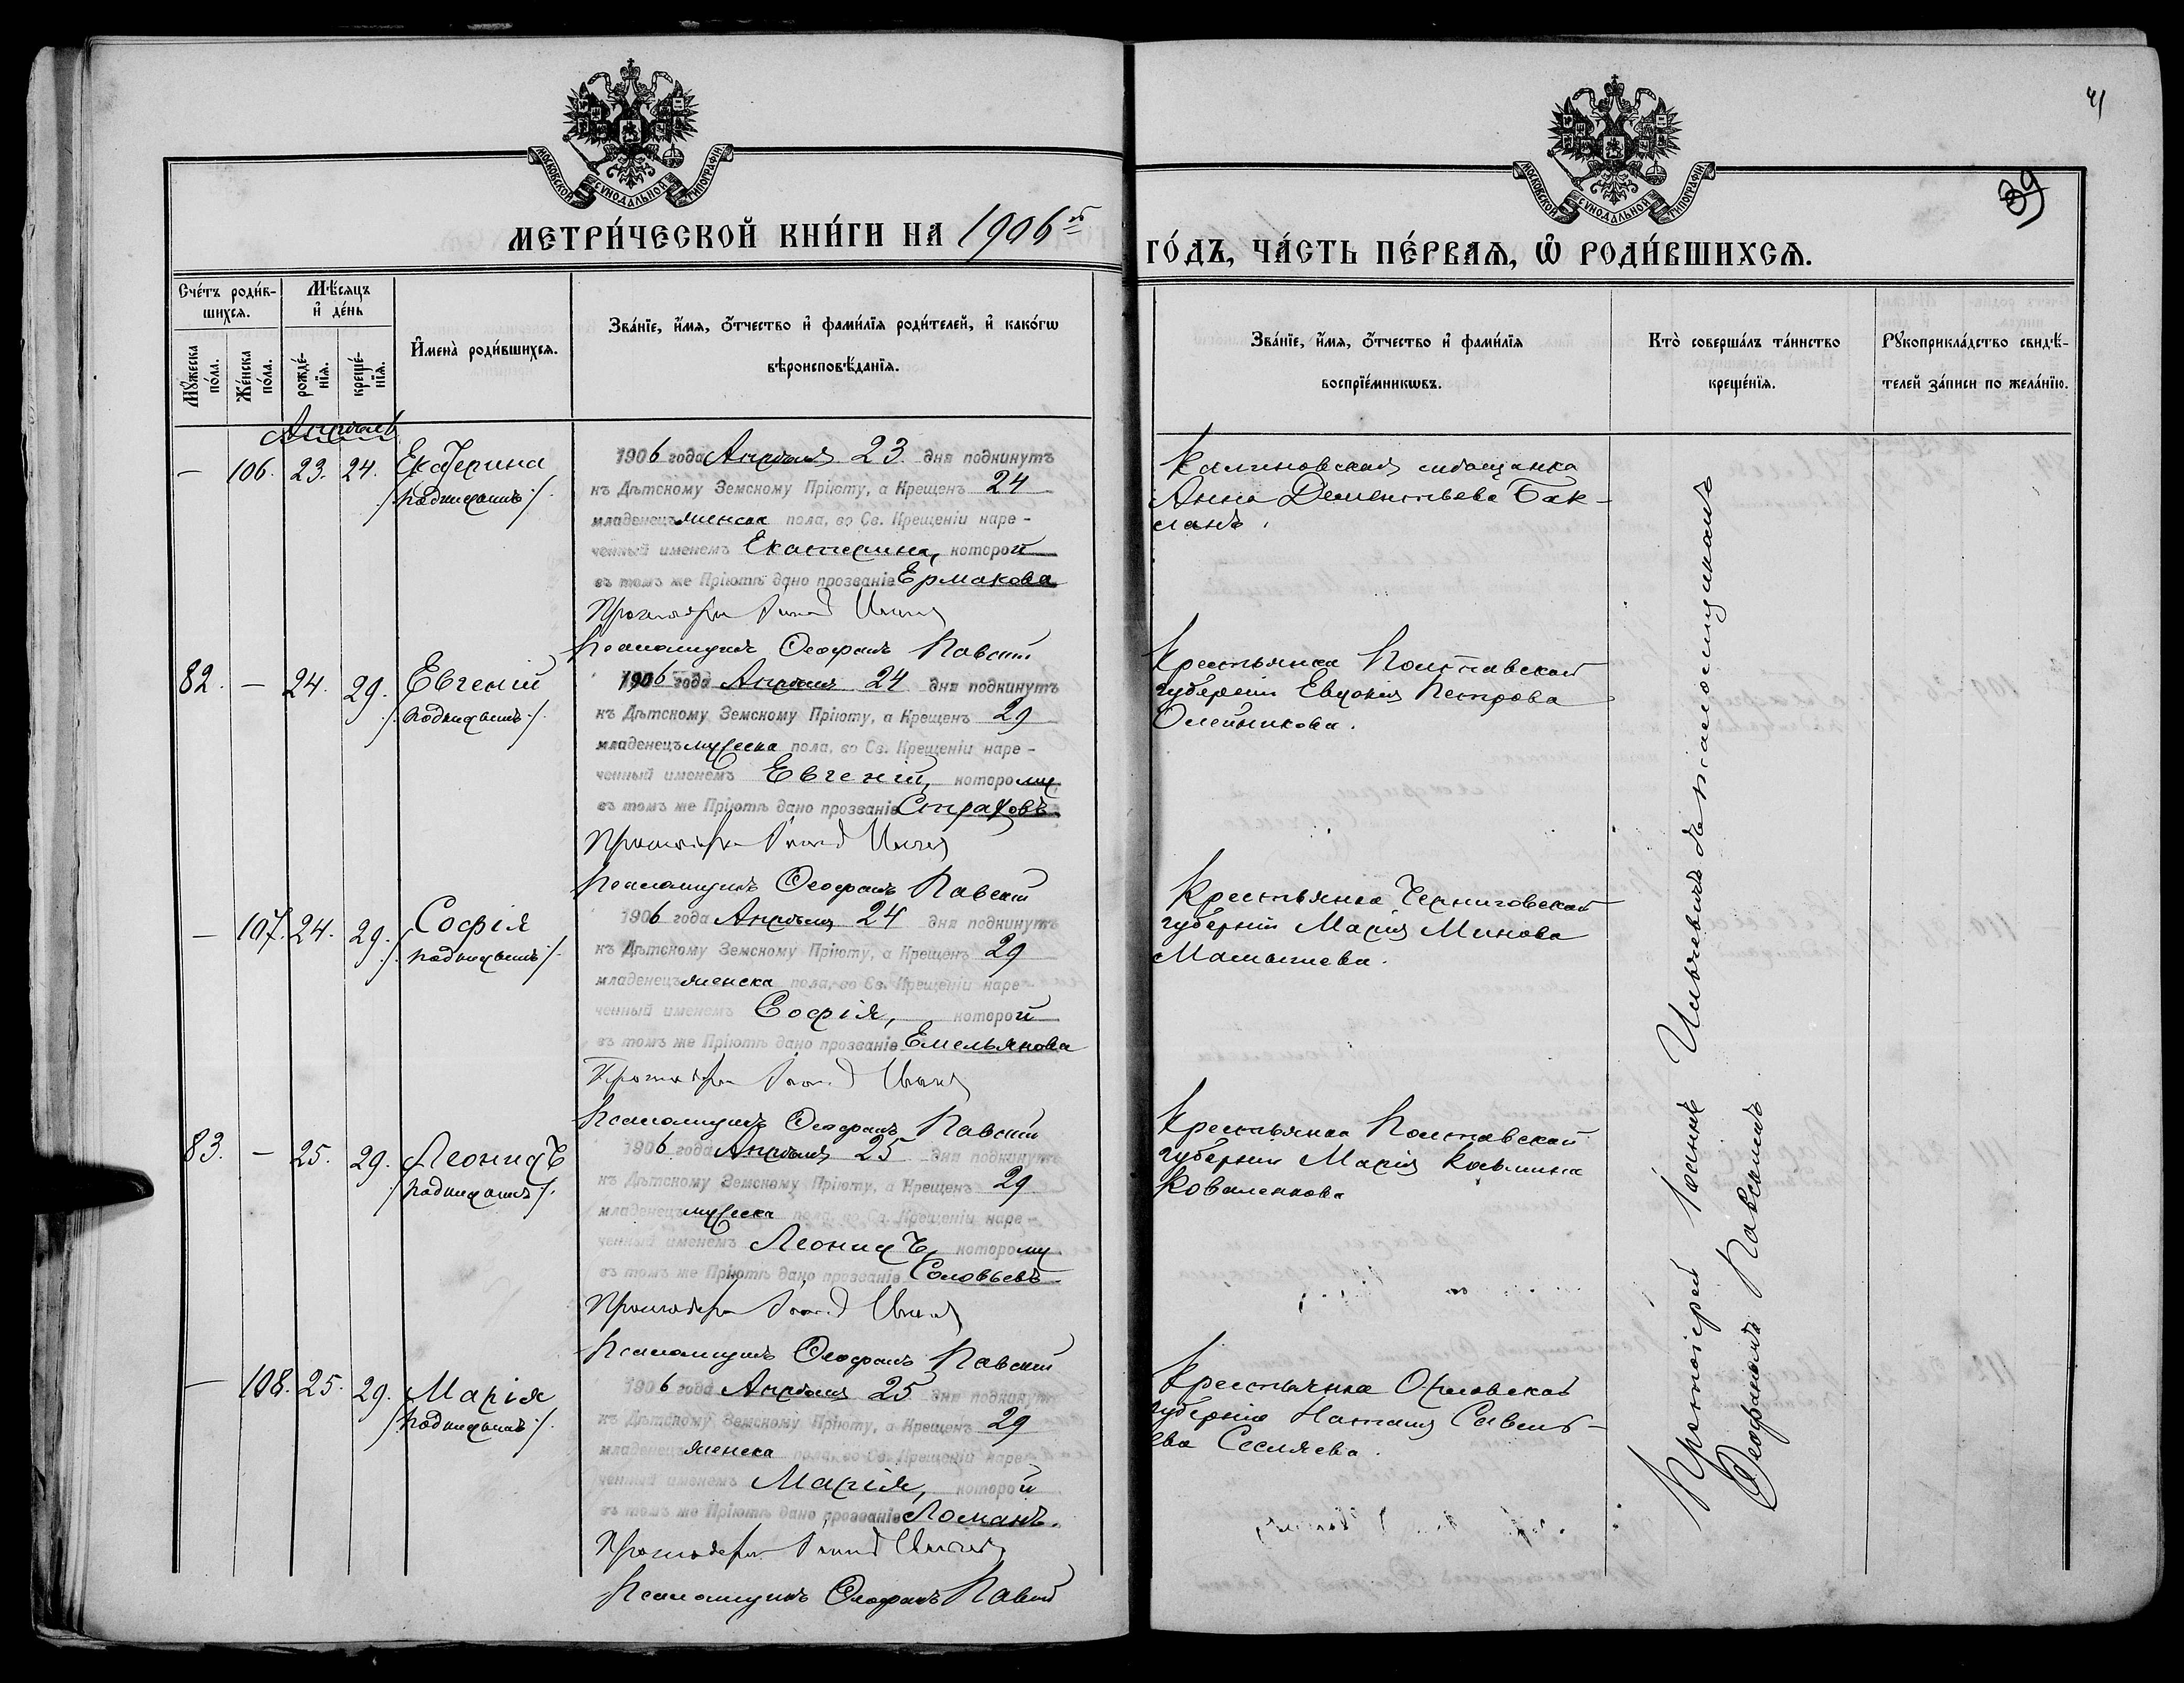 41
39
МОСКОВСКОЙ СѴНОДАЛЬНОЙ ТИПОГРАФІИ
МОСКОВСКОЙ СѴНОДАЛЬНОЙ ТИПОГРАФІИ
МЕТРИ́ЧЕСКОЙ КНИ́ГИ НА 1906й ГО́ДЪ, ЧА́СТЬ ПЕ́РВАѦ, Ѡ҆ РОДИ́ВШИХСѦ.
Сче́тъ роди́в-
шихсѧ.
Мѣ́сѧцъ
и҆ де́нь
Мꙋ́жеска
по́ла.
Же́нска
по́ла.
рожде́-
нїѧ.
креще́-
нїѧ.
И҆мена̀ роди́вшихсѧ.
Зва́нїе, и҆́мѧ, ѻ҆́тчество и҆ фами́лїѧ роди́телей, и҆ како́гѡ
вѣроисповѣ́данїѧ.
Зва́нїе, и҆́мѧ, ѻ҆́тчество и҆ фами́лїѧ
воспрїе́мникѡвъ.
Кто̀ соверша́лъ та́инство
креще́нїѧ.
Рꙋкоприкла́дство свидѣ́-
телей за́писи по жела́нїю.
Апрѣль
— 106. 23. 24. Екатерина
/подкидышъ/.
1906 года Апрѣля 23 дня подкинутъ
къ Дѣтскому Земскому Пріюту, а Крещенъ 24
младенецъ женска пола, во Св. Крещеніи наре-
ченный именемъ Екатерина, которой
въ томъ же Пріютѣ дано прозваніе Ермакова
Протоіерей Іоаннъ
Псаломщикъ Ѳеофанъ Павскій
Калиновская мѣщанка
Анна Дементьева Бак-
ланъ.
82. — 24. 29. Евгеній
/подкидышъ/.
1906 года Апрѣля 24 дня подкинутъ
къ Дѣтскому Земскому Пріюту, а Крещенъ 29
младенецъ мужеска пола, во Св. Крещеніи наре-
ченный именемъ Евгеній, которому
въ томъ же Пріютѣ дано прозваніе Страховъ.
Протоіерей Іоаннъ
Псаломщикъ Ѳеофанъ Павскій
Крестьянка Полтавской
губерніи Евдокія Петрова
Олейникова.
— 107. 24. 29. Софія
/подкидышъ/.
1906 года Апрѣля 24 дня подкинутъ
къ Дѣтскому Земскому Пріюту, а Крещенъ 29
младенецъ женска пола, во Св. Крещеніи наре-
ченный именемъ Софія, которой
въ томъ же Пріютѣ дано прозваніе Емельянова
Протоіерей Іоаннъ
Псаломщикъ Ѳеофанъ Павскій
Крестьянка Черниговской
губерніи Марія Минова
83. — 25. 29. Леонидъ
/подкидышъ/.
1906 года Апрѣля 25 дня подкинутъ
къ Дѣтскому Земскому Пріюту, а Крещенъ 29
младенецъ мужеска пола, во Св. Крещеніи наре-
ченный именемъ Леонидъ, которому
въ томъ же Пріютѣ дано прозваніе Соловьевъ.
Протоіерей Іоаннъ
Псаломщикъ Ѳеофанъ Павскій
Крестьянка Полтавской
губерніи Марія Козьмина
Коваленкова
— 108. 25. 29. Марія
/подкидышъ/.
1906 года Апрѣля 25 дня подкинутъ
къ Дѣтскому Земскому Пріюту, а Крещенъ 29
младенецъ женска пола, во Св. Крещеніи наре-
ченный именемъ Марія, которой
въ томъ же Пріютѣ дано прозваніе Ломанъ.
Протоіерей Іоаннъ
Псаломщикъ Ѳеофанъ Павскій
Крестьянка Орловской
губерніи Наталія Савель-
ева Сесляева.
Протоіерей Іоаннъ Ильчевичъ съ псаломщикомъ
Ѳеофаномъ Павскимъ.